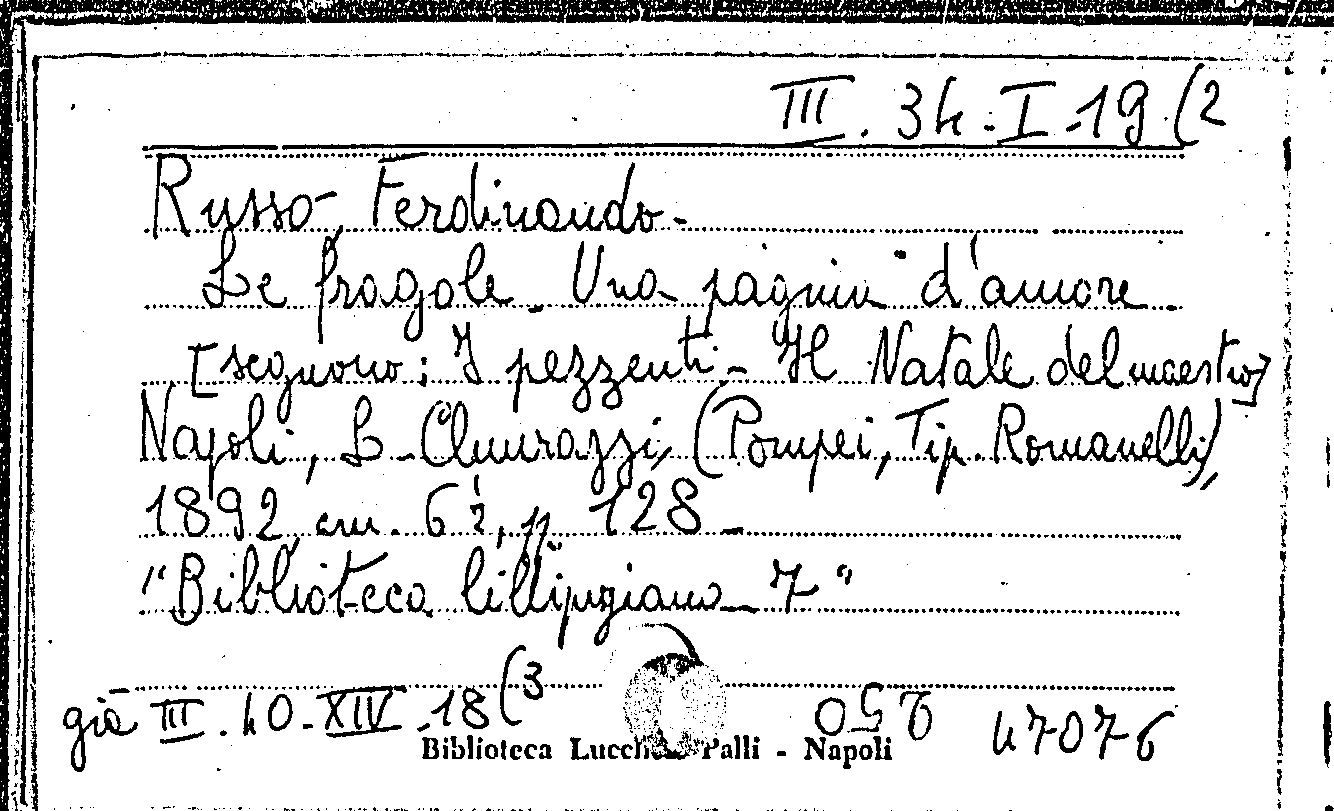 III. 34. I. 19 (2
Russo, Ferdinando.
Le fragole. Una pagina d'amore.
[seguono: I pezzenti - Il Natale del maestro]
Napoli, L. Chiurazzi, (Pompei, Tip. Romanelli),
1892, cm. 6 1/2, p. 128.
"Biblioteca lillipuziana 7"
già III. 40. XIV. 18 (3
47076
Biblioteca Lucchesi Palli - Napoli